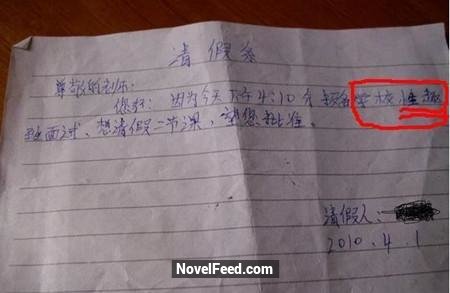 请假条
尊敬的老师:
您好: 因为今天下午4:10分 报名学校性趣
班面试、想请假二节课,望您批准。
请假人:
2010.4.1
NovelFeed.com